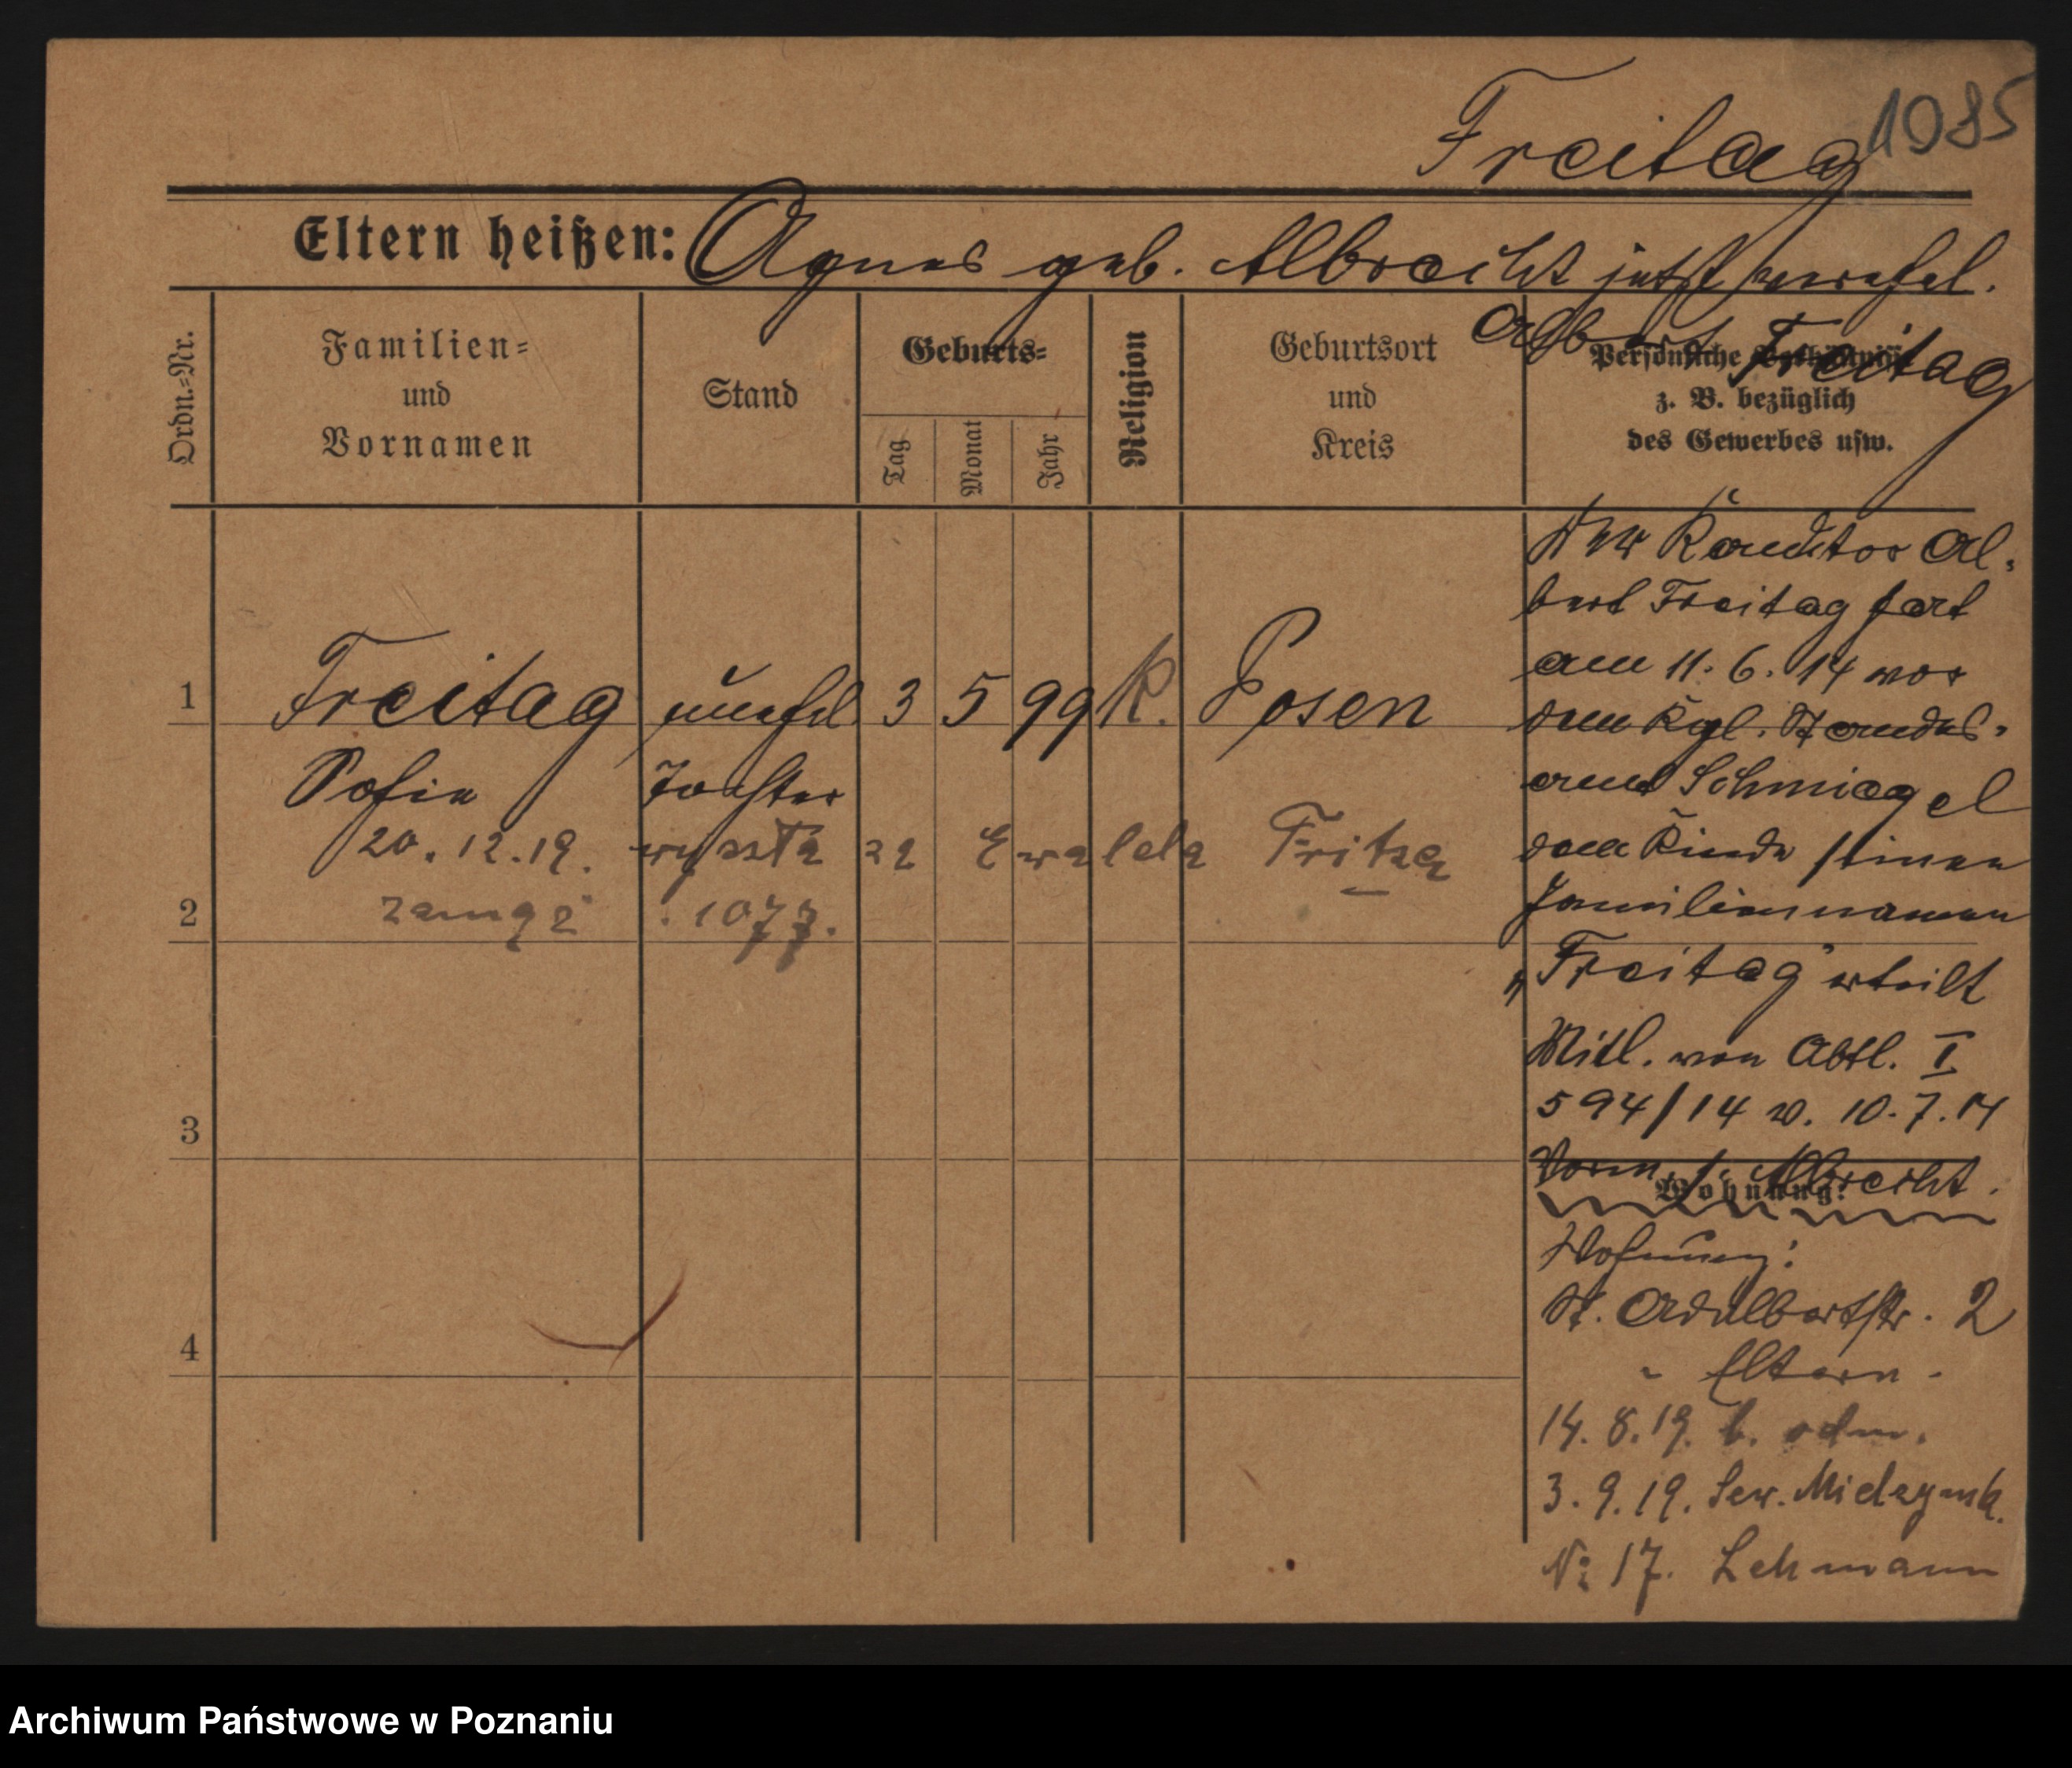 Freitag 1985
Eltern heißen: Agnes geb. Albrecht jetzt verehel.
Albert Freitag
Ordn.-Nr.
Familien-
und
Vornamen
Stand
Geburts-
Tag
Monat
Jahr
Religion
Geburtsort
und
Kreis
Persönliche
z. B. bezüglich
des Gewerbes usw.
1
Freitag unehel 3 5 99 K. Posen
Sofie Tochter
20.12.19. wyszła za Ewalda Fritza
2
zamąż 1077.
3
4
Der Konditor Al-
bert Freitag hat
am 11.6.14 vor
dem Kgl. Standes-
amt Schmiegel
dem Kinde seinen
Familiennamen
„Freitag" erteilt
Mitl. von Abtl. I
594/14 v. 10.7.14
Vorm. s. Albrecht.
Wohnung:
Wohnung:
St. Adalbertstr. 2
Eltern -
14.8.19.
3.9.19. Sew.
No 17. Lehmann
Archiwum Państwowe w Poznaniu